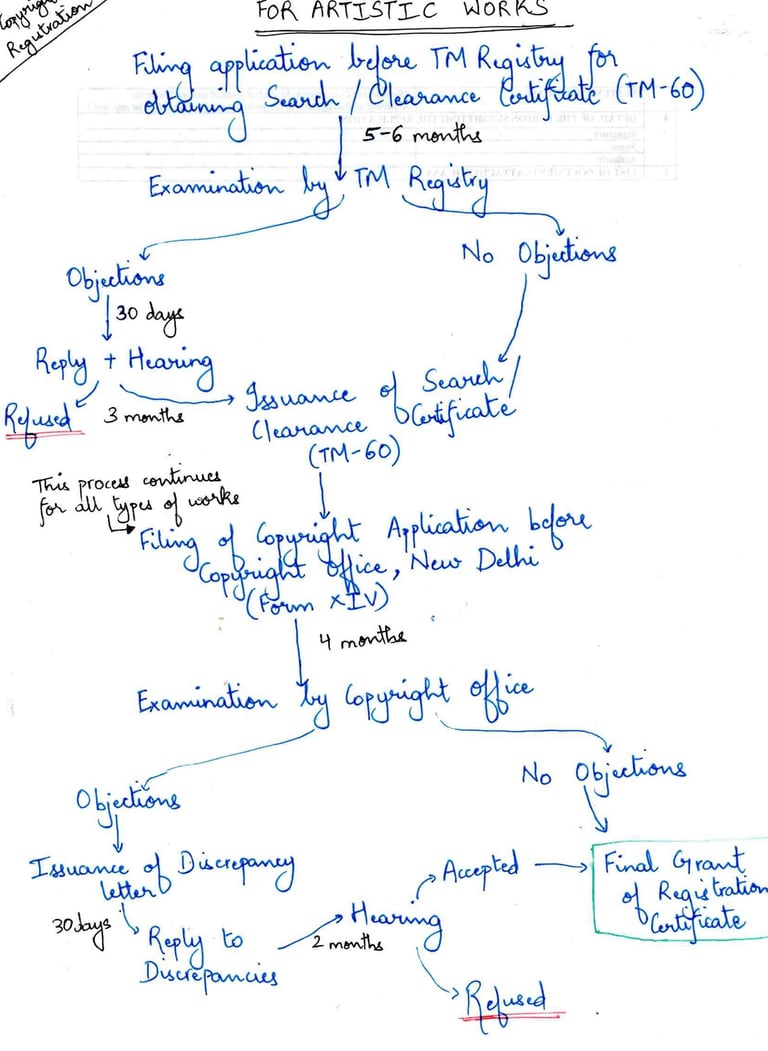 Copyright
Registration
FOR ARTISTIC WORKS
Filing application before TM Registry for
obtaining Search / Clearance Certificate (TM-60)
5-6 months
Examination by TM Registry
No Objections
Objections
30 days
Reply + Hearing
Refused
3 months
Issuance of Search /
Clearance Certificate
(TM-60)
This process continues
for all types of works
Filing of Copyright Application before
Copyright Office, New Delhi
(Form XIV)
4 months
Examination by Copyright Office
Objections
No Objections
Issuance of Discrepancy
letter
30 days
Reply to
Discrepancies
2 months
Hearing
Accepted
Refused
Final Grant
of Registration
Certificate